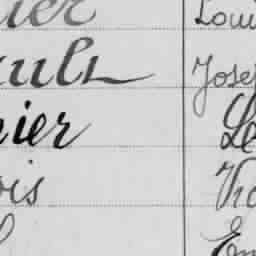 ier Loui
ault Jose
nier Le
ois Vic
l Em